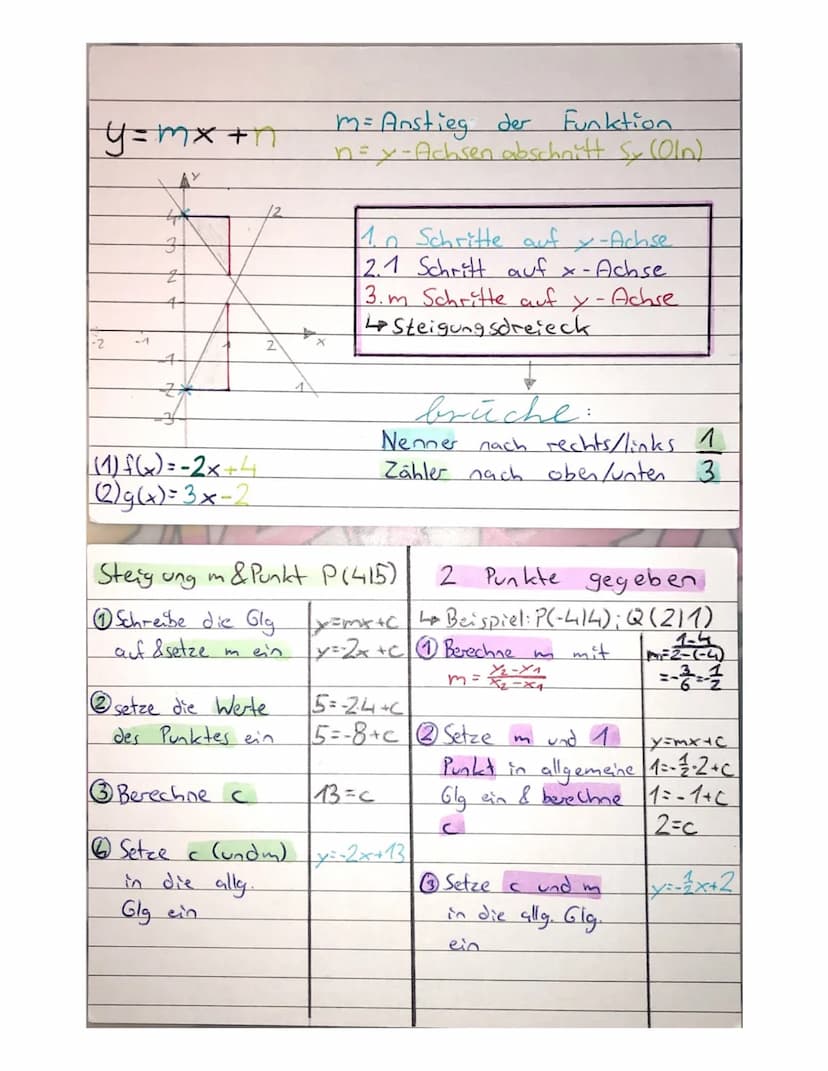 y=mx+n
m=Anstieg der Funktion
n=y-Achsenabschnitt Sy(0|n)
y
4
3
2
1
-2 -1 1 2 x
-1
-2
-3
2
1
1. n Schritte auf y-Achse
2. 1 Schritt auf x-Achse
3. m Schritte auf y-Achse
↳ Steigungsdreieck
brüche:
Nenner nach rechts/links 1
Zähler nach oben/unten 3
(1) f(x)=-2x+4
(2) g(x)=3x-2
Steigung m & Punkt P(4|5)
① Schreibe die Glg y=mx+c
auf & setze m ein y=-2x+c
② setze die Werte 5=-2·4+c
des Punktes ein 5=-8+c
③ Berechne c 13=c
④ Setze c (und m) y=-2x+13
in die allg.
Glg ein
2 Punkte gegeben
↳ Beispiel: P(-4|4); Q(2|1)
① Berechne m mit m=(1-4)/(2-(-4))
m=(y₂-y₁)/(x₂-x₁) =-3/6=-1/2
② Setze m und 1 y=mx+c
Punkt in allgemeine 1=-1/2·2+c
Glg ein & berechne 1=-1+c
c 2=c
③ Setze c und m y=-1/2x+2
in die allg. Glg.
ein